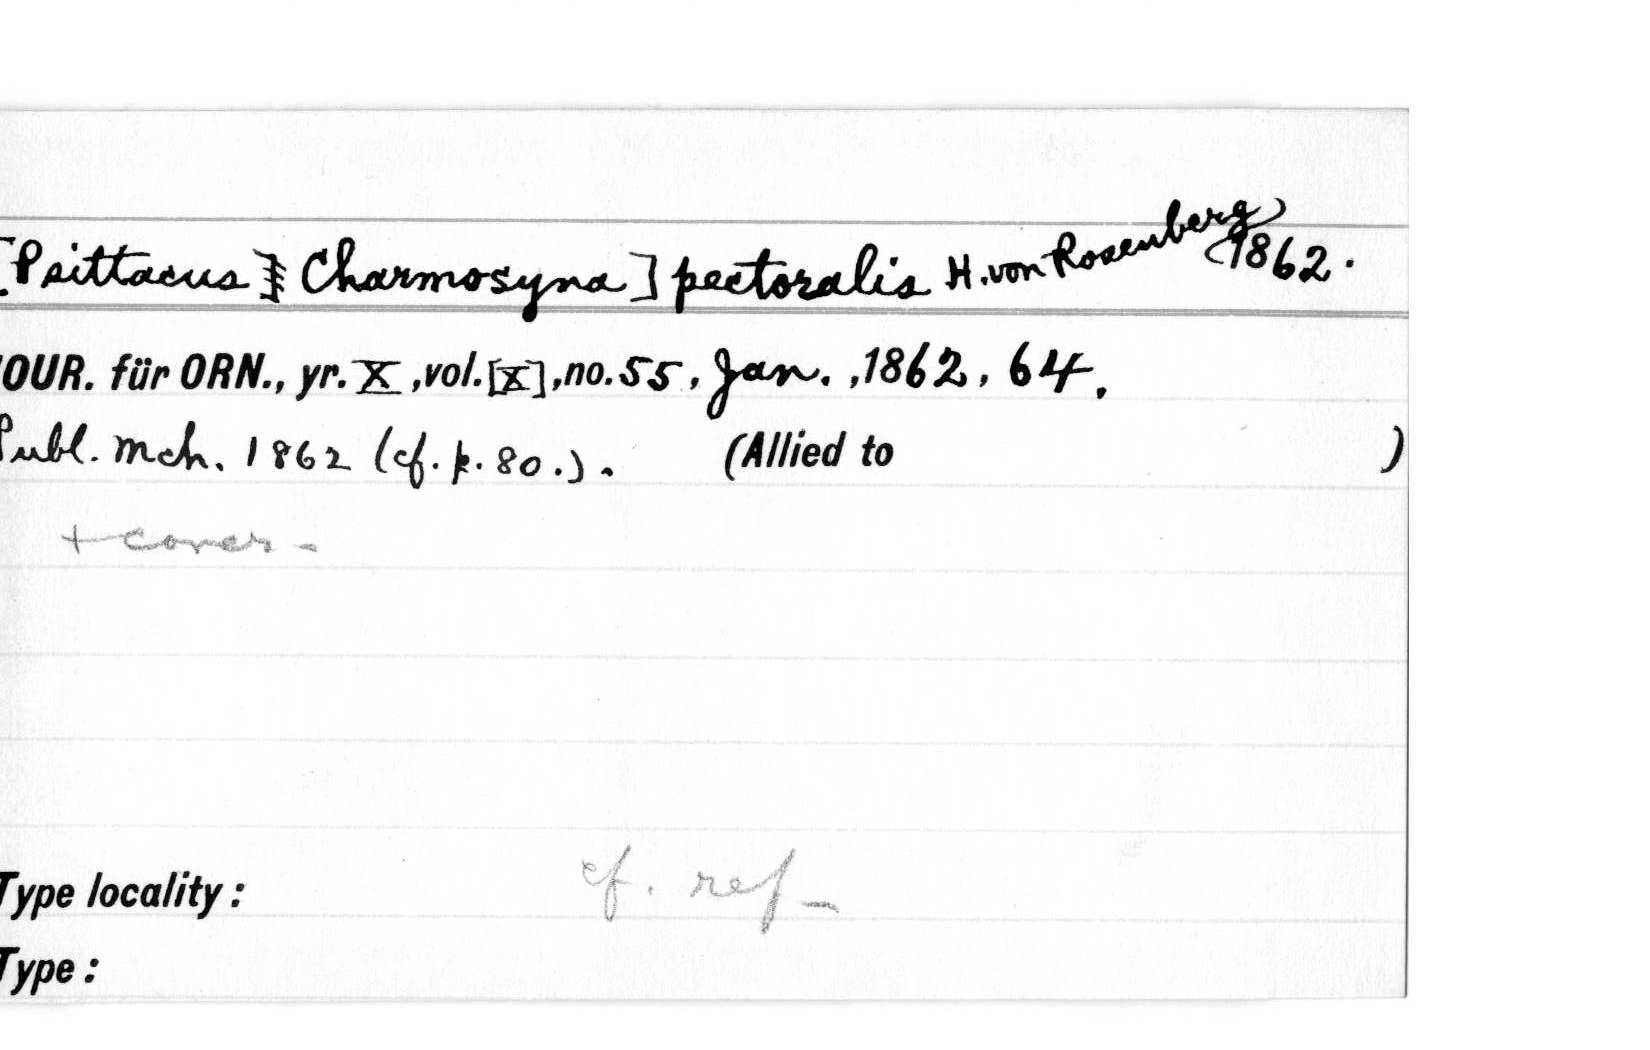 [Psittacus] Charmosyna] pectoralis H. von Rosenberg) (1862.
OUR. für ORN., yr. X, vol. [X], no. 55, Jan., 1862, 64.
Publ. Mch. 1862 (cf. p. 80.). (Allied to )
+ covers -
Type locality: cf. ref -
Type: